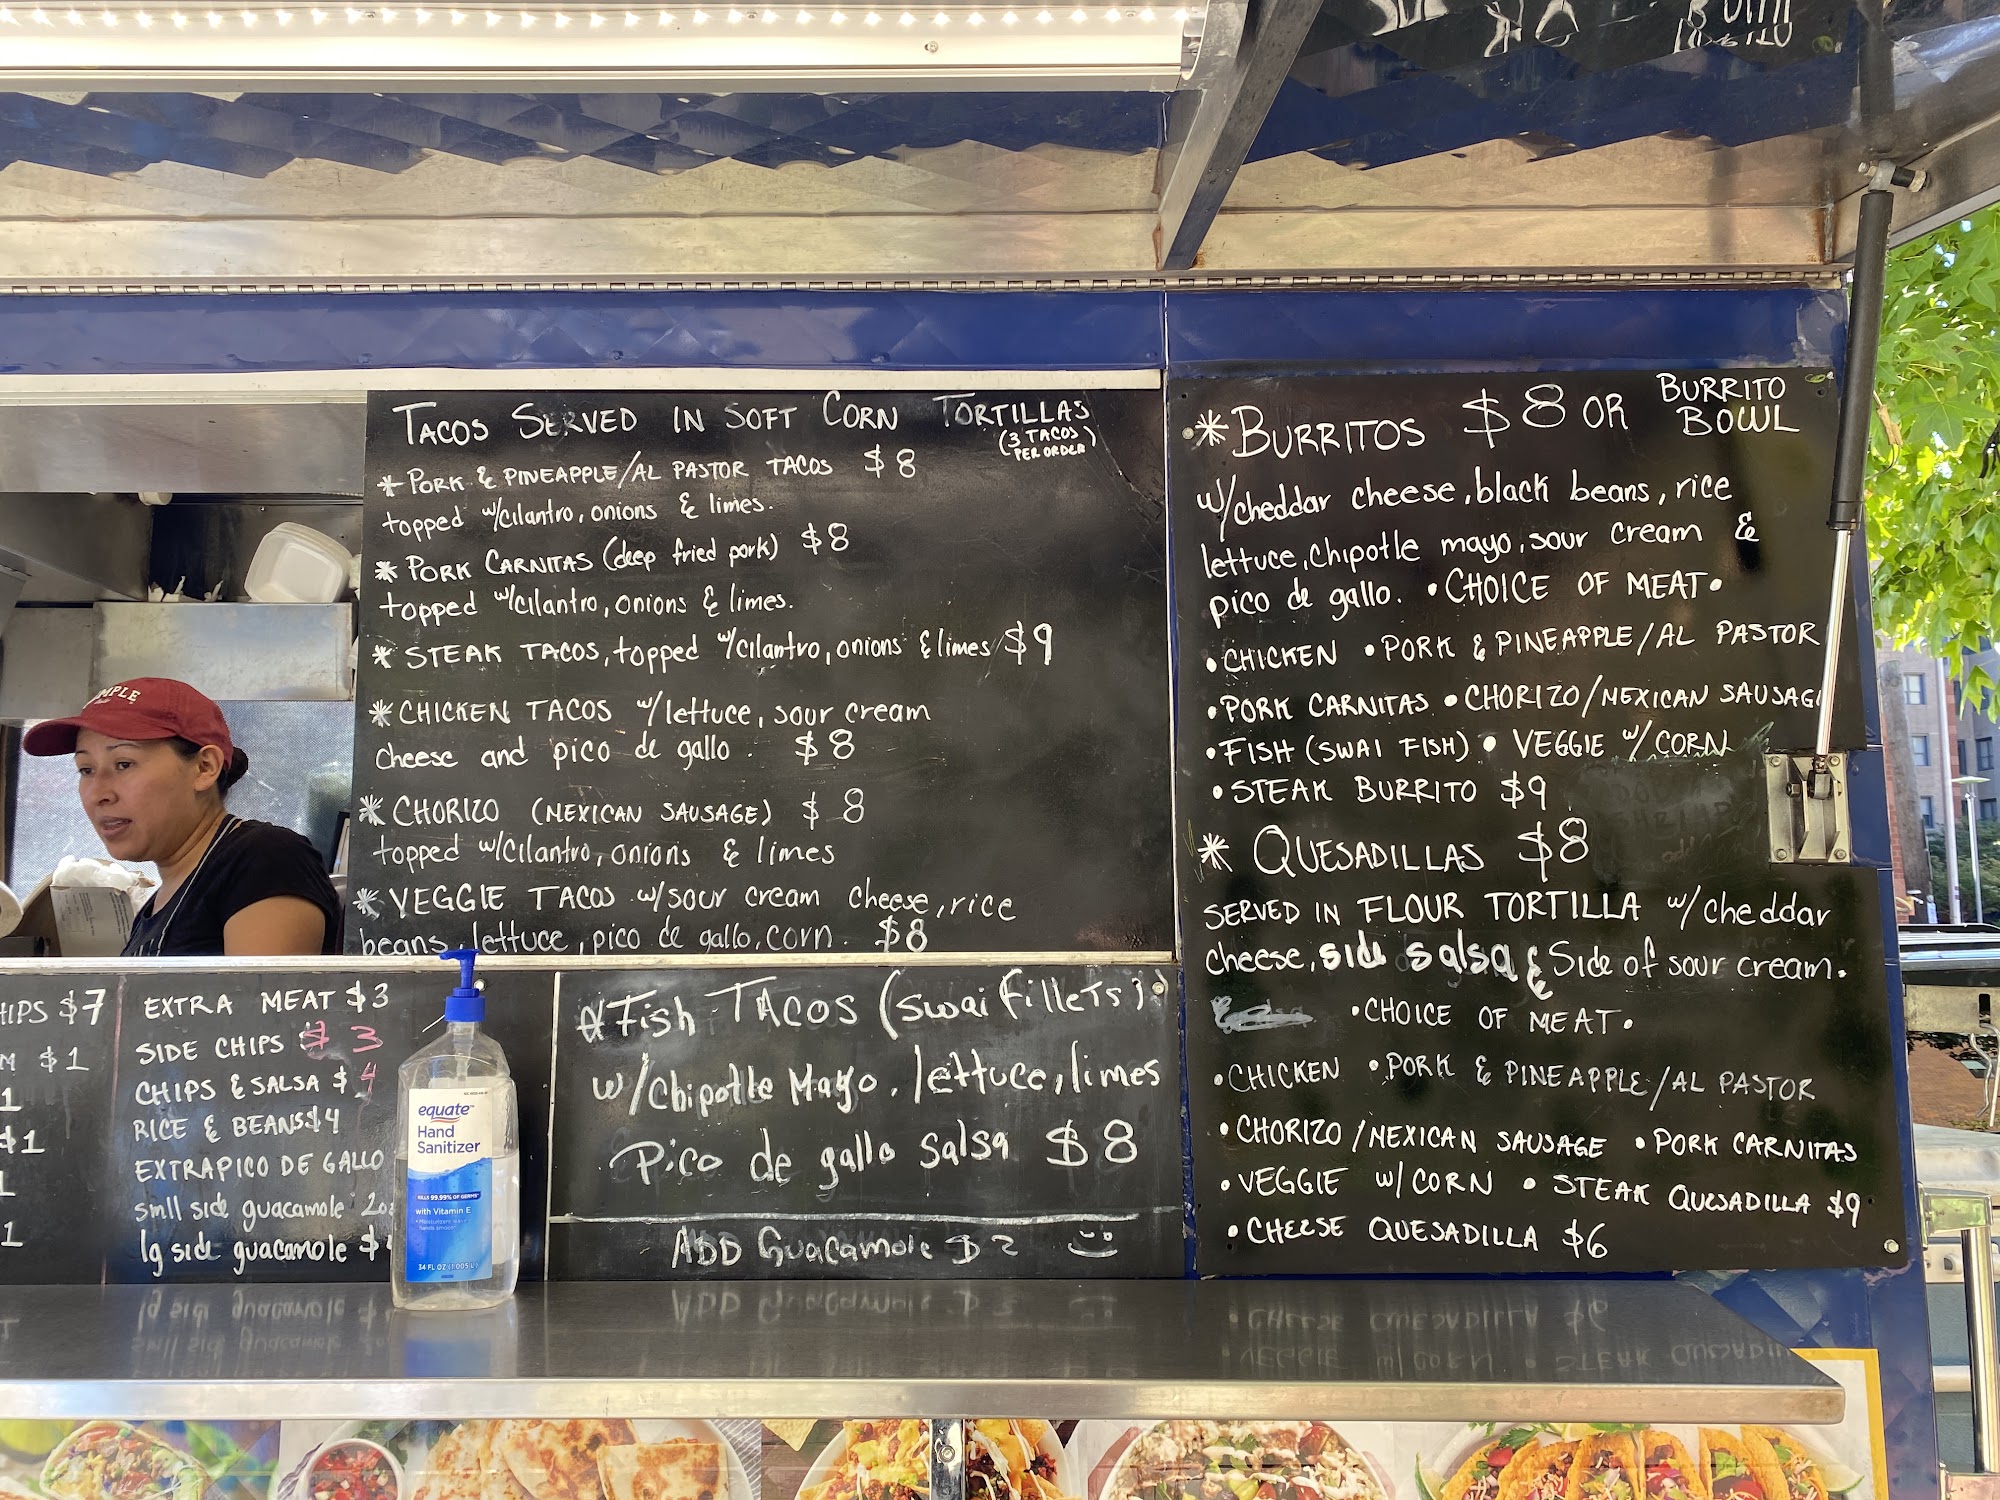 TACOS SERVED IN SOFT CORN TORTILLAS
(3 TACOS
PER ORDER)
* PORK & PINEAPPLE/AL PASTOR TACOS $8
topped w/cilantro, onions & limes.
* PORK CARNITAS (deep fried pork) $8
topped w/cilantro, onions & limes.
* STEAK TACOS, topped w/cilantro, onions & limes $9
* CHICKEN TACOS w/lettuce, sour cream
cheese and pico de gallo. $8
* CHORIZO (MEXICAN SAUSAGE) $8
topped w/cilantro, onions & limes
* VEGGIE TACOS w/sour cream cheese, rice
beans, lettuce, pico de gallo, corn. $8
* BURRITOS $8 OR BURRITO
BOWL
w/cheddar cheese, black beans, rice
lettuce, chipotle mayo, sour cream &
pico de gallo. • CHOICE OF MEAT •
• CHICKEN • PORK & PINEAPPLE/AL PASTOR
• PORK CARNITAS • CHORIZO/MEXICAN SAUSAG
• FISH (SWAI FISH) • VEGGIE w/CORN
• STEAK BURRITO $9
* QUESADILLAS $8
SERVED IN FLOUR TORTILLA w/cheddar
cheese, side salsa & Side of sour cream.
• CHOICE OF MEAT •
• CHICKEN • PORK & PINEAPPLE/AL PASTOR
• CHORIZO/MEXICAN SAUSAGE • PORK CARNITAS
• VEGGIE w/CORN • STEAK QUESADILLA $9
• CHEESE QUESADILLA $6
HIPS $7
M $1
1
$1
1
EXTRA MEAT $3
SIDE CHIPS $3
CHIPS & SALSA $4
RICE & BEANS $4
EXTRA PICO DE GALLO
smll side guacamole 2oz
lg side guacamole $
* Fish TACOS (swai fillets)
w/Chipotle Mayo, lettuce, limes
Pico de gallo salsa $8
ADD Guacamole $2
equate
Hand
Sanitizer
KILLS 99.99% OF GERMS*
with Vitamin E
34 FL OZ (1.005 L)